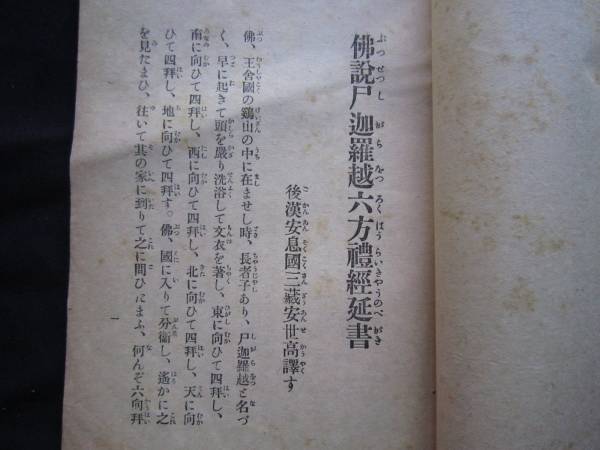 佛說尸迦羅越六方禮經延書
後漢安息國三藏安世高譯す
佛、王舍國の鷄山の中に在ませし時、長者子あり、尸迦羅越と名づ
く、早に起きて頭を嚴り洗浴して文衣を著し、東に向ひて四拜し、
南に向ひて四拜し、西に向ひて四拜し、北に向ひて四拜し、天に向
ひて四拜し、地に向ひて四拜す。佛、國に入りて分衞し、遙かに之
を見たまひ、往いて其の家に到りて之に問ひたまふ、何んぞ六向拜
一